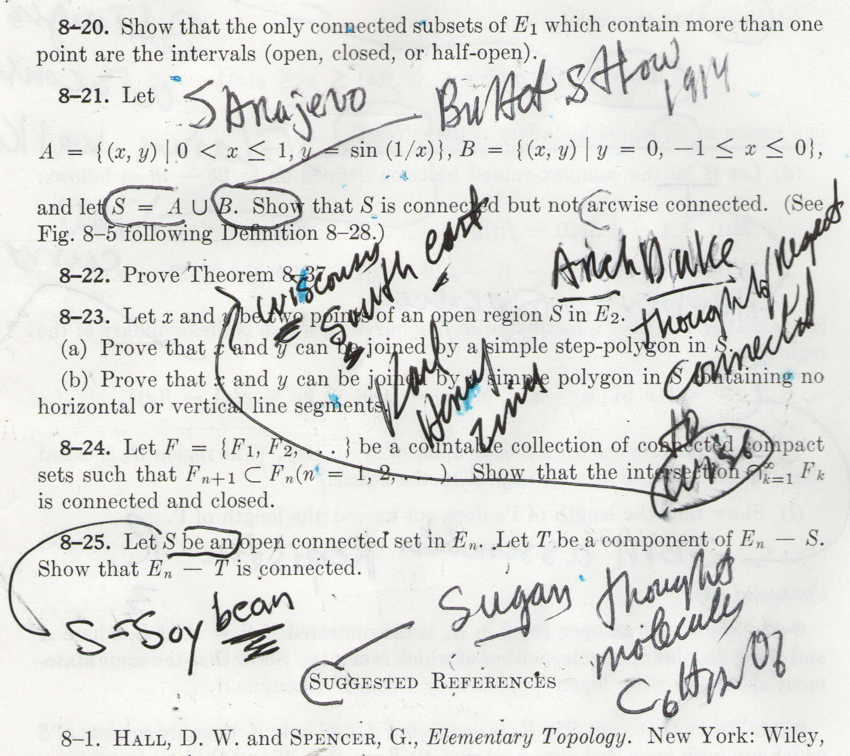 8–20. Show that the only connected subsets of E₁ which contain more than one
point are the intervals (open, closed, or half-open).
8–21. Let
Sarajevo
Butter Show
1914
A = {(x, y) | 0 < x ≤ 1, y = sin (1/x)}, B = {(x, y) | y = 0, −1 ≤ x ≤ 0},
and let S = A ∪ B. Show that S is connected but not arcwise connected. (See
Fig. 8–5 following Definition 8–28.)
8–22. Prove Theorem 8–37
Wisconsin
South east
Arch Duke
thought
connected
to
8–23. Let x and y be two points of an open region S in E₂.
(a) Prove that x and y can be joined by a simple step-polygon in S.
(b) Prove that x and y can be joined by a simple polygon in S containing no
horizontal or vertical line segments.
Karl
8–24. Let F = {F₁, F₂, . . . } be a countable collection of connected compact
sets such that Fₙ₊₁ ⊂ Fₙ(n = 1, 2, . . . ). Show that the intersection ∩∞ₖ₌₁ Fₖ
is connected and closed.
8–25. Let S be an open connected set in Eₙ. Let T be a component of Eₙ − S.
Show that Eₙ − T is connected.
S-Soy bean
Sugar thought
molecules
C6 H12 O6
SUGGESTED REFERENCES
8–1. HALL, D. W. and SPENCER, G., Elementary Topology. New York: Wiley,